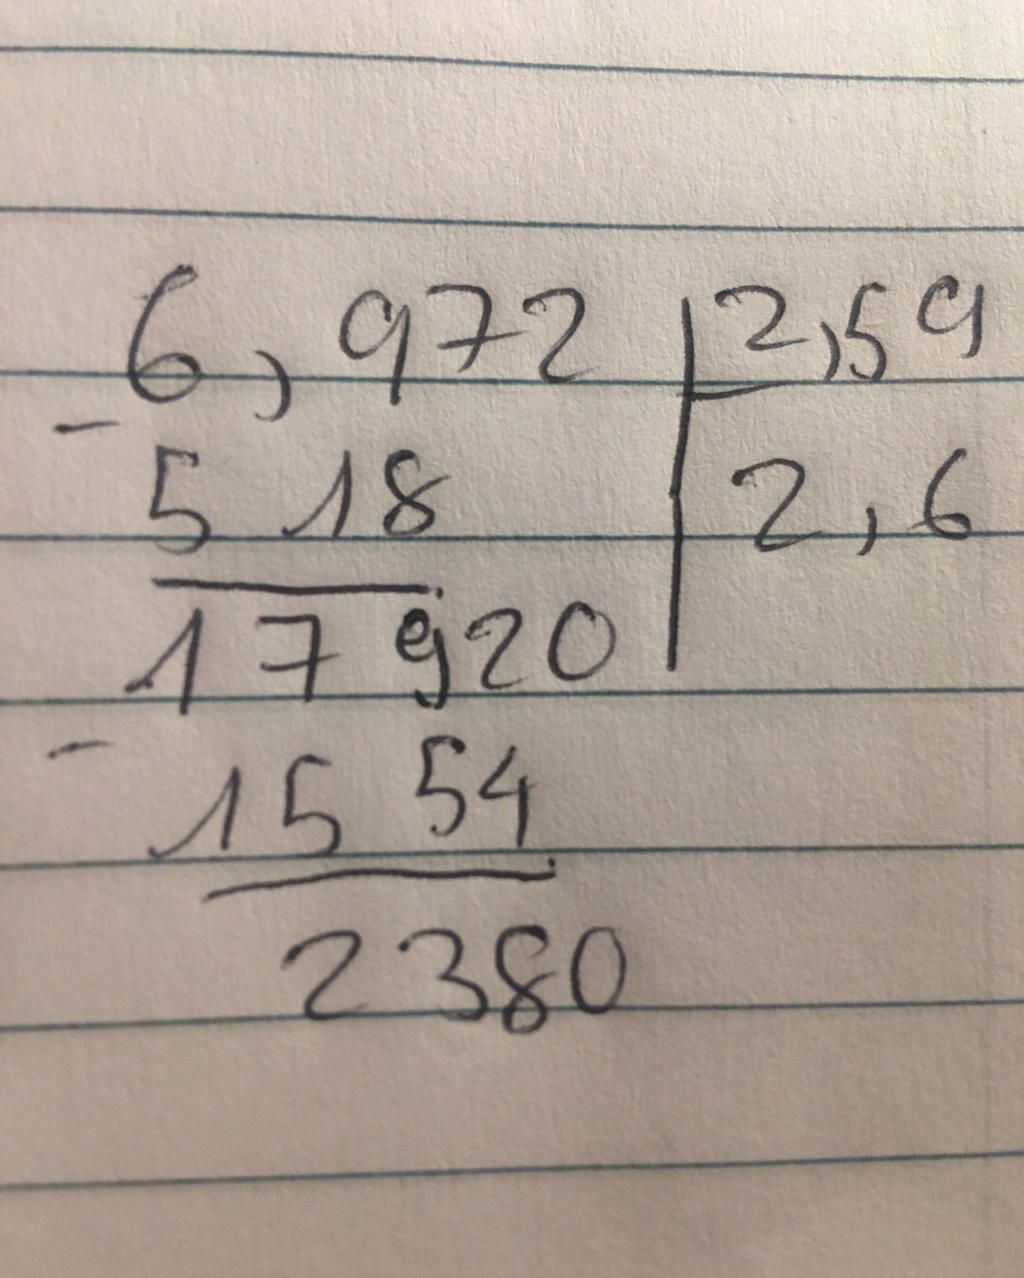 6,972 2,59
- 518 2,6
17920
- 1554
2380